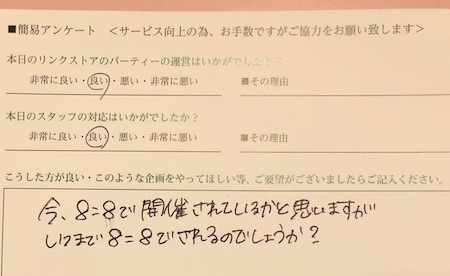 ■簡易アンケート ＜サービス向上の為、お手数ですがご協力をお願い致します＞
本日のリンクストアのパーティーの運営はいかがでしたか？
非常に良い・良い・悪い・非常に悪い ■その理由
本日のスタッフの対応はいかがでしたか？
非常に良い・良い・悪い・非常に悪い ■その理由
こうした方が良い・このような企画をやってほしい等、ご要望がございましたらご記入ください。
今、8=8で開催されているかと思いますが
いつまで8=8でされるのでしょうか？